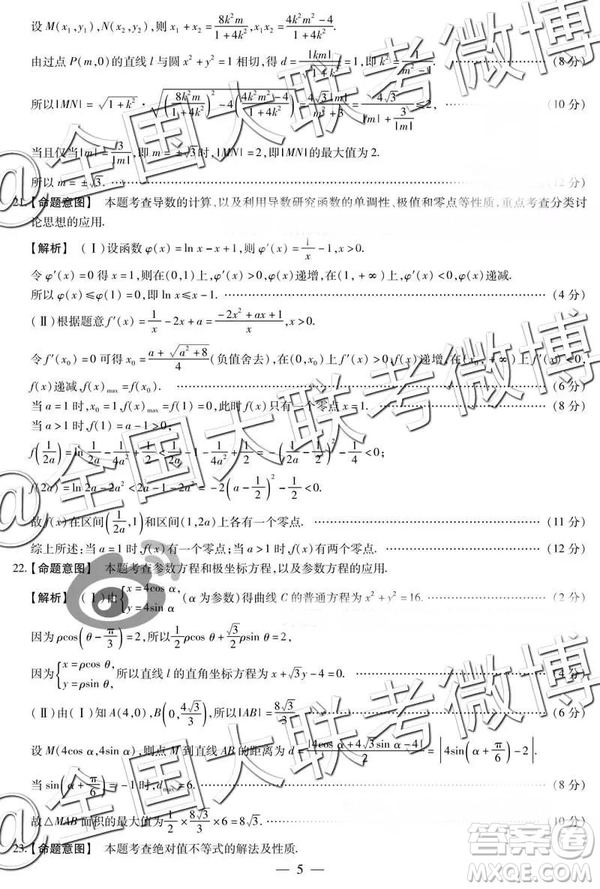 设 M(x₁,y₁),N(x₂,y₂),则 x₁+x₂=8k²m/(1+4k²),x₁x₂=(4k²m²-4)/(1+4k²).
由过点 P(m,0)的直线 l 与圆 x²+y²=1 相切,得 d=|km|/√(1+k²)=1,即 k²=1/(m²-1). (8 分)
所以|MN|=√(1+k²)·√((8k²m/(1+4k²))²-4(4k²m²-4)/(1+4k²))=4√3|m|/(m²+3)=4√3/(|m|+3/|m|)≤2, (10 分)
当且仅当|m|=3/|m|,即 m=±√3 时,|MN|=2,即|MN|的最大值为 2.
所以 m=±√3. (12 分)
21.【命题意图】 本题考查导数的计算,以及利用导数研究函数的单调性、极值和零点等性质,重点考查分类讨
论思想的应用.
【解析】 (Ⅰ)设函数 φ(x)=ln x-x+1,则 φ′(x)=1/x-1.
令 φ′(x)=0 得 x=1,则在(0,1)上,φ(x)递增,在(1,+∞)上,φ(x)递减.
所以 φ(x)≤φ(1)=0,即 ln x≤x-1. (4 分)
(Ⅱ)根据题意 f′(x)=1/x-2x+a=(-2x²+ax+1)/x,x>0.
令 f′(x₀)=0 可得 x₀=(a+√(a²+8))/4(负值舍去),在(0,x₀)上,f(x)递增,在(x₀,+∞)上 f′(x)<0,
f(x)递减,f(x)max=f(x₀). (6 分)
当 a=1 时,x₀=1,f(x)max=f(1)=0,此时 f(x)只有一个零点. (8 分)
当 a>1 时,f(1)>0,
f(1/2a)=ln 1/2a-1/4a²+1/2<1/2a-1-1/4a²+1/2=-(1/2a-1/2)²-1/4<0;
f(2a)=ln 2a-2a²<2a-1-2a²=-2(a-1/2)²-1/2<0;
故 f(x)在区间(1/2a,1)和(1,2a)上各有一个零点. (11 分)
综上所述:当 a=1 时,f(x)有一个零点;当 a>1 时,f(x)有两个零点. (12 分)
22.【命题意图】 本题考查参数方程和极坐标方程,以及参数方程的应用.
【解析】 (Ⅰ)由{x=4cos α, y=4sin α (α 为参数)得曲线 C 的普通方程为 x²+y²=16. (2 分)
因为 ρcos(θ-π/3)=2,所以 1/2 ρcos θ+√3/2 ρsin θ=2,
因为{x=ρcos θ, y=ρsin θ,所以直线 l 的直角坐标方程为 x+√3y-4=0. (4 分)
(Ⅱ)由(Ⅰ)知 A(4,0),B(0,4√3/3),所以|AB|=8√3/3.
设 M(4cos α,4sin α),则点 M 到直线 AB 的距离为 d=|4cos α+4√3sin α-4|/2=|4sin(α+π/6)-2|.
当 sin(α+π/6)=-1 时,dmax=6. (8 分)
故△MAB 面积的最大值为 1/2×8√3/3×6=8√3.
23.【命题意图】 本题考查绝对值不等式的解法及性质.
— 5 —
@全国大联考微博
@全国大联考微博
@全国大联考微博
答案圈